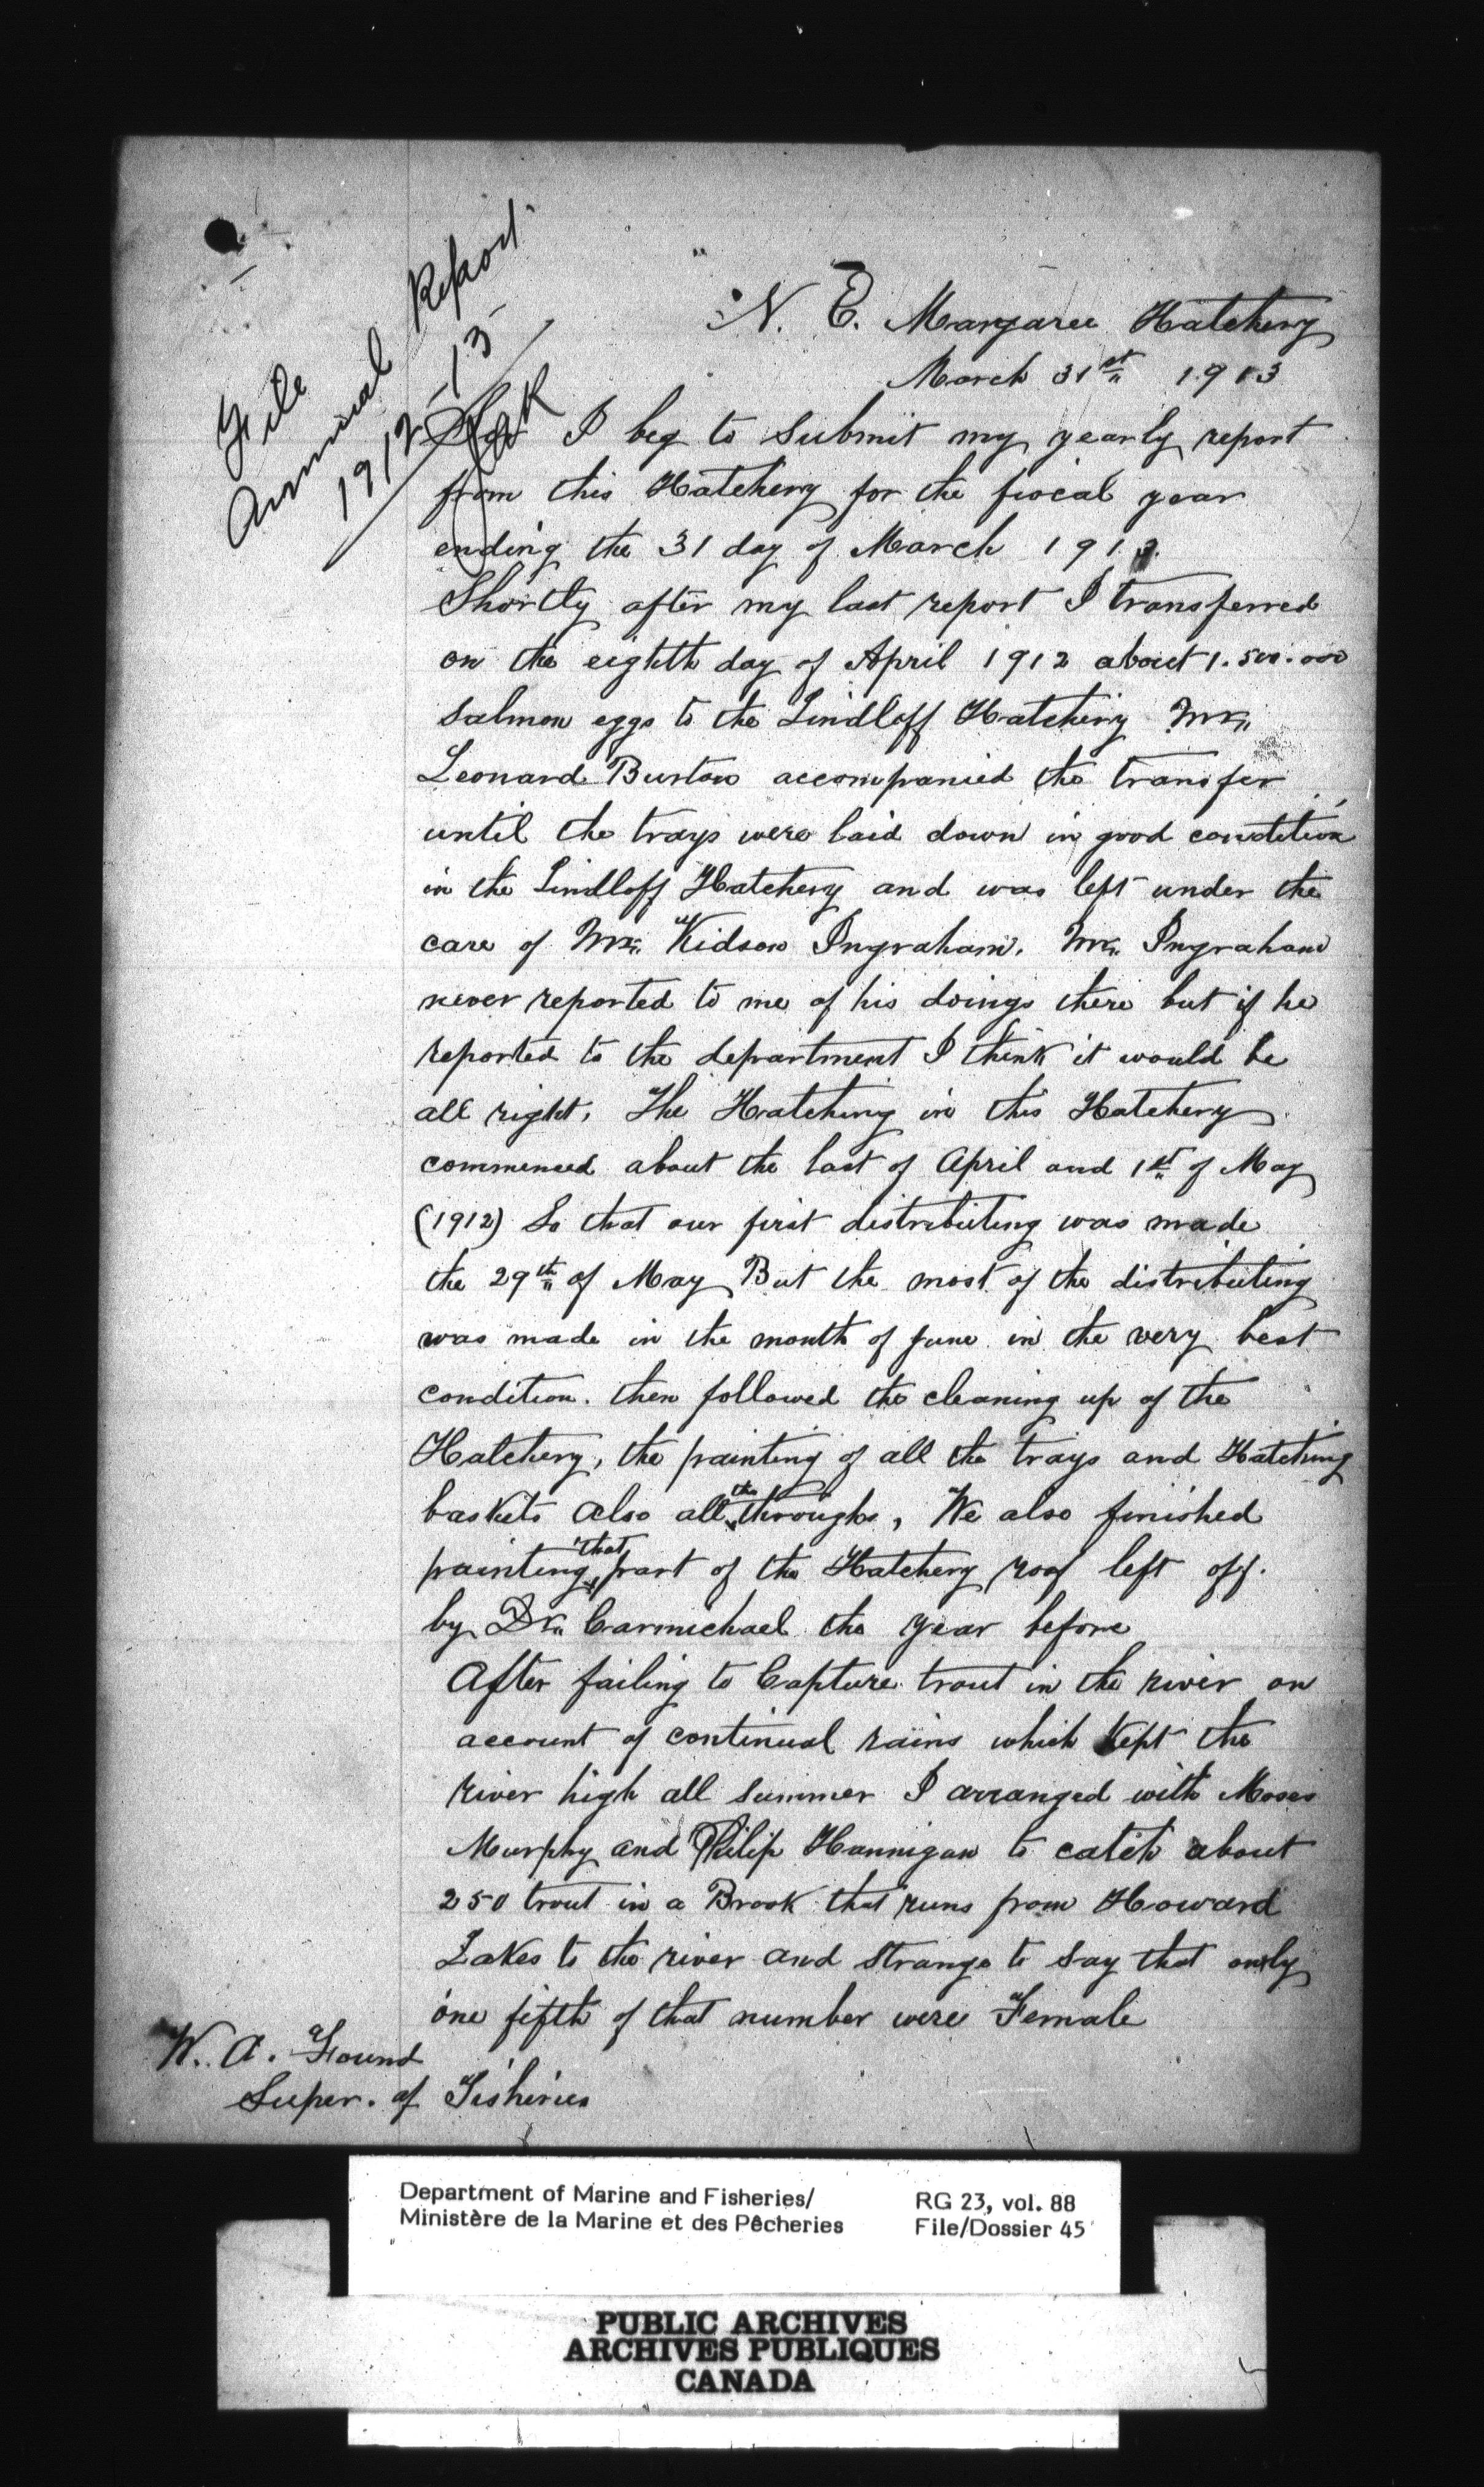 File
Annual Report
1912-13
N. E. Margaree Hatchery
March 31st 1913
Sir I beg to submit my yearly report
from this Hatchery for the fiscal year
ending the 31 day of March 1913.
Shortly after my last report I transferred
on the eighth day of April 1912 about 1.500.000
salmon eggs to the Lindloff Hatchery Mr.
Leonard Burton accompanied the transfer
until the trays were laid down in good condition
in the Lindloff Hatchery and was left under the
care of Mr. Kidson Ingraham. Mr. Ingraham
never reported to me of his doings there but if he
reported to the department I think it would be
all right. The Hatching in this Hatchery
commenced about the last of April and 1st of May
(1912) So that our first distributing was made
the 29th of May But the most of the distributing
was made in the month of June in the very best
condition. then followed the cleaning up of the
Hatchery, the painting of all the trays and Hatching
baskets also all the throughs, We also finished
painting that part of the Hatchery roof left off.
by Dr. Carmichael the year before
After failing to Capture trout in the river on
account of continual rains which kept the
river high all summer I arranged with Moses
Murphy and Philip Hannigan to catch about
250 trout in a Brook that runs from Howard
Lakes to the river and strange to say that only
one fifth of that number were Female
W. A. Found
Super. of Fisheries
Department of Marine and Fisheries/
Ministère de la Marine et des Pêcheries
RG 23, vol. 88
File/Dossier 45
PUBLIC ARCHIVES
ARCHIVES PUBLIQUES
CANADA